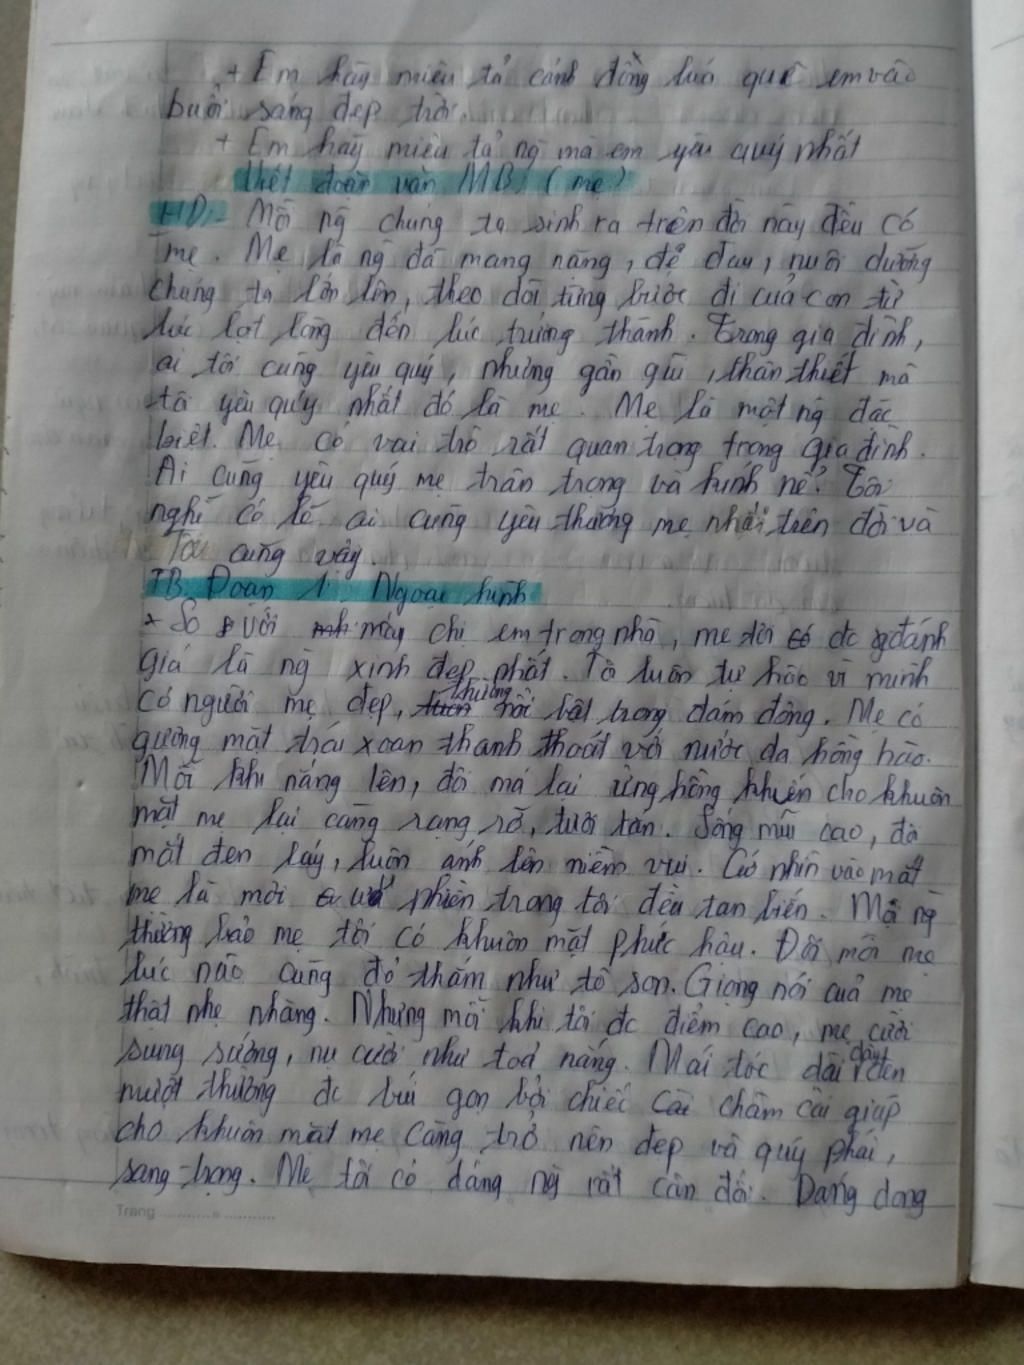 + Em hãy miêu tả cánh đồng lúa quê em vào
buổi sáng đẹp trời.
+ Em hãy miêu tả ng mà em yêu quý nhất
Viết đoạn văn MB, (mẹ)
HD,- Mỗi ng chúng ta sinh ra trên đời này đều có
mẹ. Mẹ là ng đã mang nặng, đẻ đau, nuôi dưỡng
chúng ta lớn lên, theo dõi từng bước đi của con từ
lúc lọt lòng đến lúc trưởng thành. Trong gia đình,
ai tôi cũng yêu quý, nhưng gần gũi, thân thiết mà
tôi yêu quý nhất đó là mẹ. Mẹ là một ng đặc
biệt. Mẹ có vai trò rất quan trọng trong gia đình.
Ai cũng yêu quý mẹ trân trọng và kính nể. Tôi
nghĩ có lẽ ai cũng yêu thương mẹ nhất trên đời và
Tôi cũng vậy.
TB. Đoạn 1: Ngoại hình
* So với mấy chị em trong nhà, mẹ tôi đc đánh
giá là ng xinh đẹp nhất. Tôi luôn tự hào vì mình
có người mẹ đẹp, thường nổi bật trong đám đông. Mẹ có
gương mặt trái xoan thanh thoát với nước da hồng hào.
Mỗi khi nắng lên, đôi má lại ửng hồng khiến cho khuôn
mặt mẹ lại càng rạng rỡ, tươi tắn. Sống mũi cao, đôi
mắt đen láy, luôn ánh lên niềm vui. Cứ nhìn vào mắt
mẹ là mọi ưu phiền trong tôi đều tan biến. Mọi ng
thường bảo mẹ tôi có khuôn mặt phúc hậu. Đôi môi mẹ
lúc nào cũng đỏ thắm như tô son. Giọng nói cuả mẹ
thật nhẹ nhàng. Nhưng mỗi khi tôi đc điểm cao, mẹ cười
sung sướng, nụ cười như toả nắng. Mái tóc dài, dày đen
mượt thường đc búi gọn bởi chiếc cài châm cài giúp
cho khuôn mặt mẹ càng trở nên đẹp và quý phái,
sang trọng. Mẹ tôi có dáng ng rất cân đối. Dáng dong
Trang